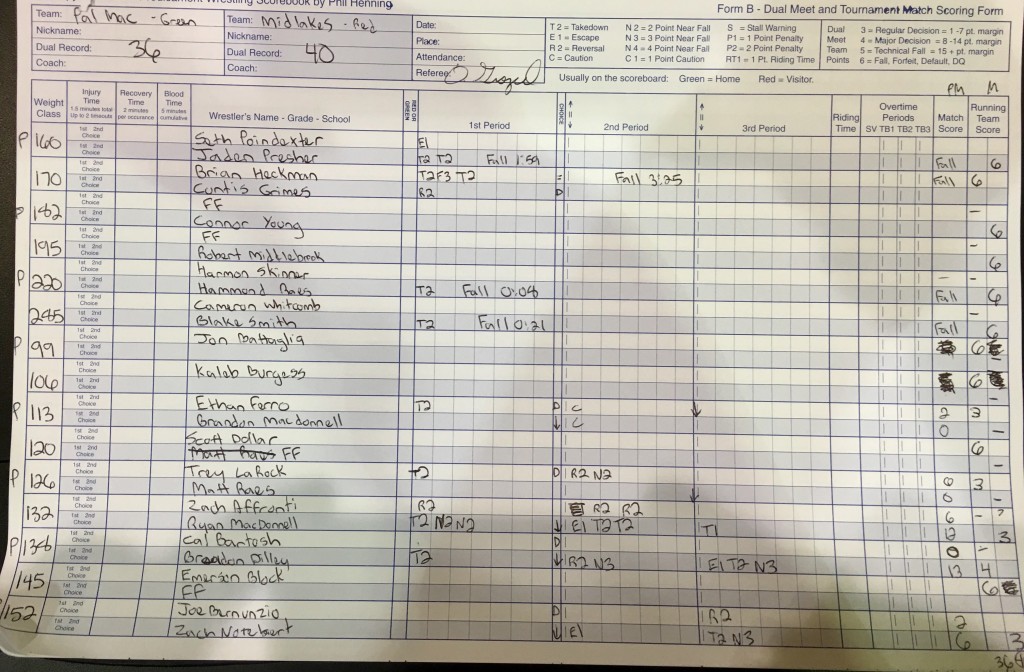 Wrestling Scorebook by Phil Henning
Form B - Dual Meet and Tournament Match Scoring Form
Team: Pal Mac - Green
Nickname:
Dual Record: 36
Coach:
Team: Midlakes - Red
Nickname:
Dual Record: 40
Coach:
Date:
Place:
Attendance:
Referee:
T 2 = Takedown N 2 = 2 Point Near Fall S = Stall Warning
E 1 = Escape N 3 = 3 Point Near Fall P1 = 1 Point Penalty
R 2 = Reversal N 4 = 4 Point Near Fall P2 = 2 Point Penalty
C = Caution C 1 = 1 Point Caution RT1 = 1 Pt. Riding Time
Dual Meet Team Points
3 = Regular Decision = 1 -7 pt. margin
4 = Major Decision = 8 -14 pt. margin
5 = Technical Fall = 15 + pt. margin
6 = Fall, Forfeit, Default, DQ
Usually on the scoreboard: Green = Home Red = Visitor.
PM M
Weight Class
Injury Time
1.5 minutes total
Up to 2 timeouts
Recovery Time
2 minutes per occurance
Blood Time
5 minutes cumulative
Wrestler's Name - Grade - School
RED OR GREEN
1st Period
CHOICE
2nd Period
3rd Period
Riding Time
Overtime Periods
SV TB1 TB2 TB3
Match Score
Running Team Score
P 160 1st 2nd Choice Seth Poindexter E1
1st 2nd Choice Jaden Presher T2 T2 Fall 1:59 Fall 6
170 1st 2nd Choice Brian Heckman T2 F3 T2 = Fall 3:25 Fall 6
1st 2nd Choice Curtis Grimes R2 D
P 182 1st 2nd Choice FF –
1st 2nd Choice Connor Young 6
195 1st 2nd Choice FF –
1st 2nd Choice Robert Middlebrook 6
P 220 1st 2nd Choice Harmon Skinner – –
1st 2nd Choice Hammond Raes T2 Fall 0:08 Fall 6
285 1st 2nd Choice Cameron Whitcomb –
1st 2nd Choice Blake Smith T2 Fall 0:21 Fall 6
P 99 1st 2nd Choice Jon Battaglia 6
1st 2nd Choice –
106 1st 2nd Choice Kaleb Burgess 6
1st 2nd Choice –
P 113 1st 2nd Choice Ethan Ferro T2 D C 2 3
1st 2nd Choice Brandon Macdonnell ↓ C ↓ 0 –
120 1st 2nd Choice Scott Dollar 6
1st 2nd Choice Matt Raes FF –
P 126 1st 2nd Choice Trey LaRock T2 D R2 N2 6 3
1st 2nd Choice Matt Raes ↓ 0 –
132 1st 2nd Choice Zach Affronti R2 R2 R2 6 –
1st 2nd Choice Ryan MacDonnell T2 N2 N2 ↓ E1 T2 T2 T1 12 3
P 138 1st 2nd Choice Cal Bantosh D 0 –
1st 2nd Choice Braadon Dilley T2 ↓ R2 N3 E1 T2 N3 13 4
145 1st 2nd Choice Emerson Block 6
1st 2nd Choice FF
152 1st 2nd Choice Joe Burnunzio D R2 2
1st 2nd Choice Zach Notebaert ↓ E1 T2 N3 6 3
36